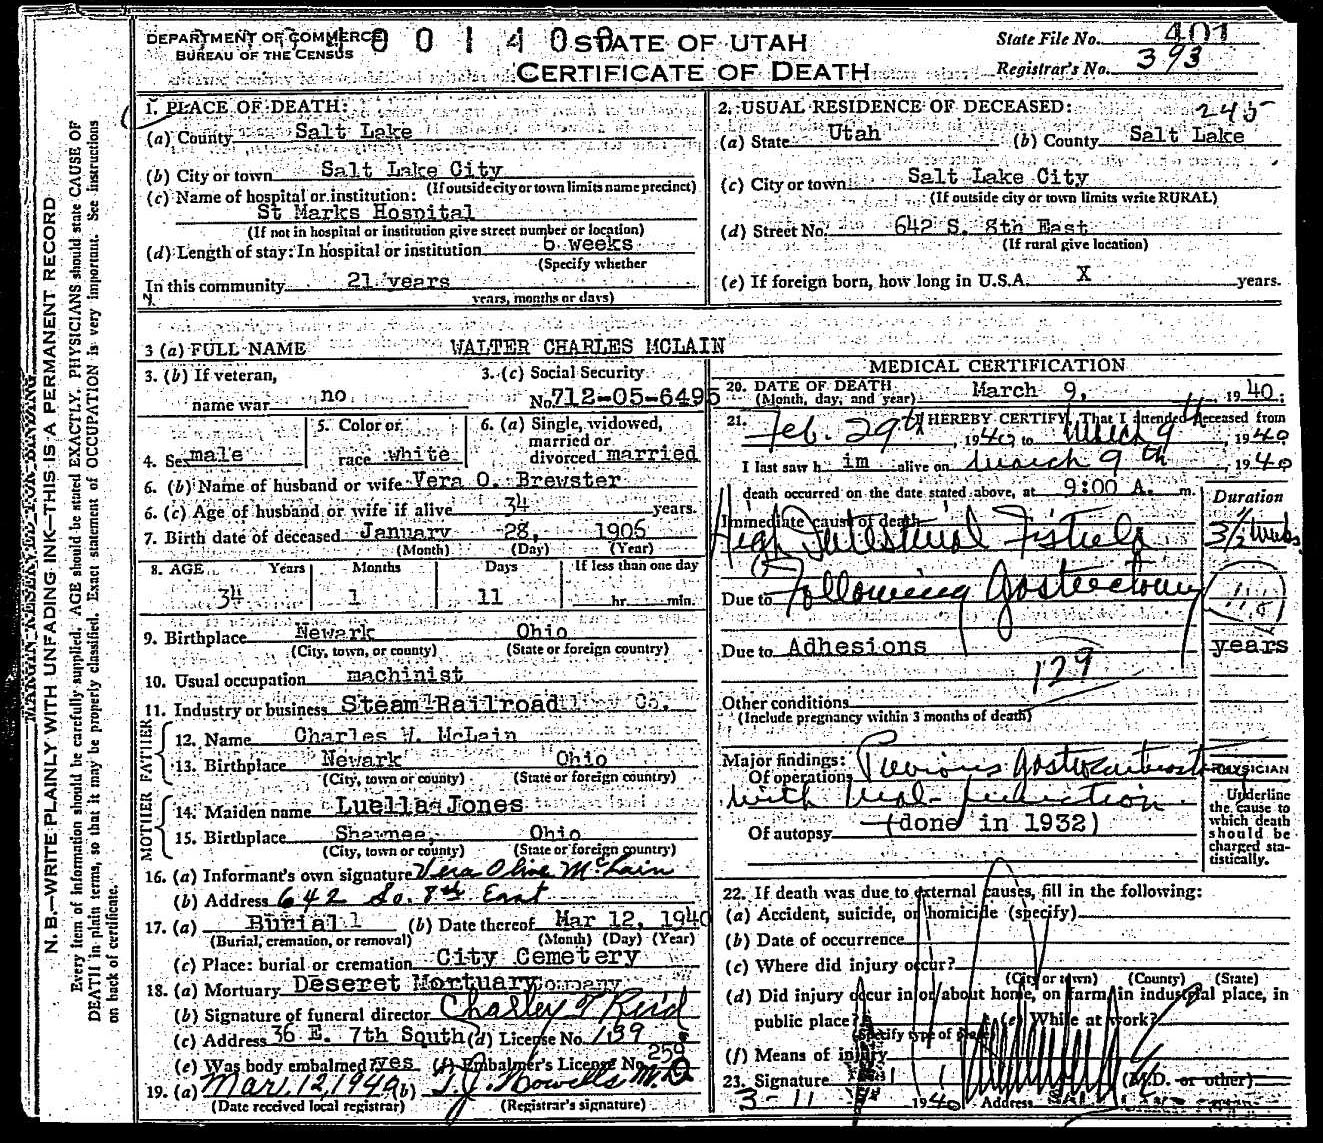 DEPARTMENT OF COMMERCE
BUREAU OF THE CENSUS
STATE OF UTAH
CERTIFICATE OF DEATH
State File No. 401
Registrar's No. 393
N. B.—WRITE PLAINLY WITH UNFADING INK—THIS IS A PERMANENT RECORD
Every item of information should be carefully supplied. AGE should be stated EXACTLY. PHYSICIANS should state CAUSE OF
DEATH in plain terms, so that it may be properly classified. Exact statement of OCCUPATION is very important. See instructions
on back of certificate.
1. PLACE OF DEATH:
(a) County Salt Lake
(b) City or town Salt Lake City
(If outside city or town limits name precinct)
(c) Name of hospital or institution:
St Marks Hospital
(If not in hospital or institution give street number or location)
(d) Length of stay: In hospital or institution 6 weeks
(Specify whether
In this community 21 years
years, months or days)
2. USUAL RESIDENCE OF DECEASED: 245
(a) State Utah (b) County Salt Lake
(c) City or town Salt Lake City
(If outside city or town limits write RURAL)
(d) Street No. 642 S. 8th East
(If rural give location)
(e) If foreign born, how long in U.S.A. X years.
3 (a) FULL NAME WALTER CHARLES MCLAIN
3. (b) If veteran,
name war no
3. (c) Social Security
No. 712-05-6495
4. Sex male
5. Color or
race white
6. (a) Single, widowed,
married or
divorced married
6. (b) Name of husband or wife Vera O. Brewster
6. (c) Age of husband or wife if alive 34 years.
7. Birth date of deceased January 28, 1906
(Month) (Day) (Year)
8. AGE Years Months Days If less than one day
34 1 11 hr. min.
9. Birthplace Newark Ohio
(City, town, or county) (State or foreign country)
10. Usual occupation machinist
11. Industry or business Steam Railroad Co.
FATHER
12. Name Charles W. McLain
13. Birthplace Newark Ohio
(City, town or county) (State or foreign country)
MOTHER
14. Maiden name Luella Jones
15. Birthplace Shawnee, Ohio
(City, town or county) (State or foreign country)
16. (a) Informant's own signature Vera Olive McLain
(b) Address 642 So. 8th East
17. (a) Burial (b) Date thereof Mar 12, 1940
(Burial, cremation, or removal) (Month) (Day) (Year)
(c) Place: burial or cremation City Cemetery
18. (a) Mortuary Deseret Mortuary Company
(b) Signature of funeral director Charley T Reid
(c) Address 36 E. 7th South (d) License No. 139
(e) Was body embalmed? yes (f) Embalmer's License No. 259
19. (a) Mar. 12, 1940 (b) T.J. Howells M.D.
(Date received local registrar) (Registrar's signature)
MEDICAL CERTIFICATION
20. DATE OF DEATH March 9, 1940.
(Month, day, and year)
21. I HEREBY CERTIFY, That I attended deceased from
Feb. 29th, 1940 to March 9th, 1940
I last saw h im alive on March 9th, 1940
death occurred on the date stated above, at 9:00 A. m.
Duration
Immediate cause of death
High Intestinal Fistula 3 1/2 wks.
Due to Following Gastrectomy
Due to Adhesions years
129
Other conditions
(Include pregnancy within 3 months of death)
Major findings:
Of operation Previous Gastroenterostomy
(done in 1932)
Of autopsy
PHYSICIAN
Underline
the cause to
which death
should be
charged sta-
tistically.
22. If death was due to external causes, fill in the following:
(a) Accident, suicide, or homicide (specify)
(b) Date of occurrence
(c) Where did injury occur?
(City or town) (County) (State)
(d) Did injury occur in or about home, on farm, in industrial place, in
public place? (e) While at work?
(Specify type of place)
(f) Means of injury
23. Signature (M.D. or other)
3-11 1940 Address